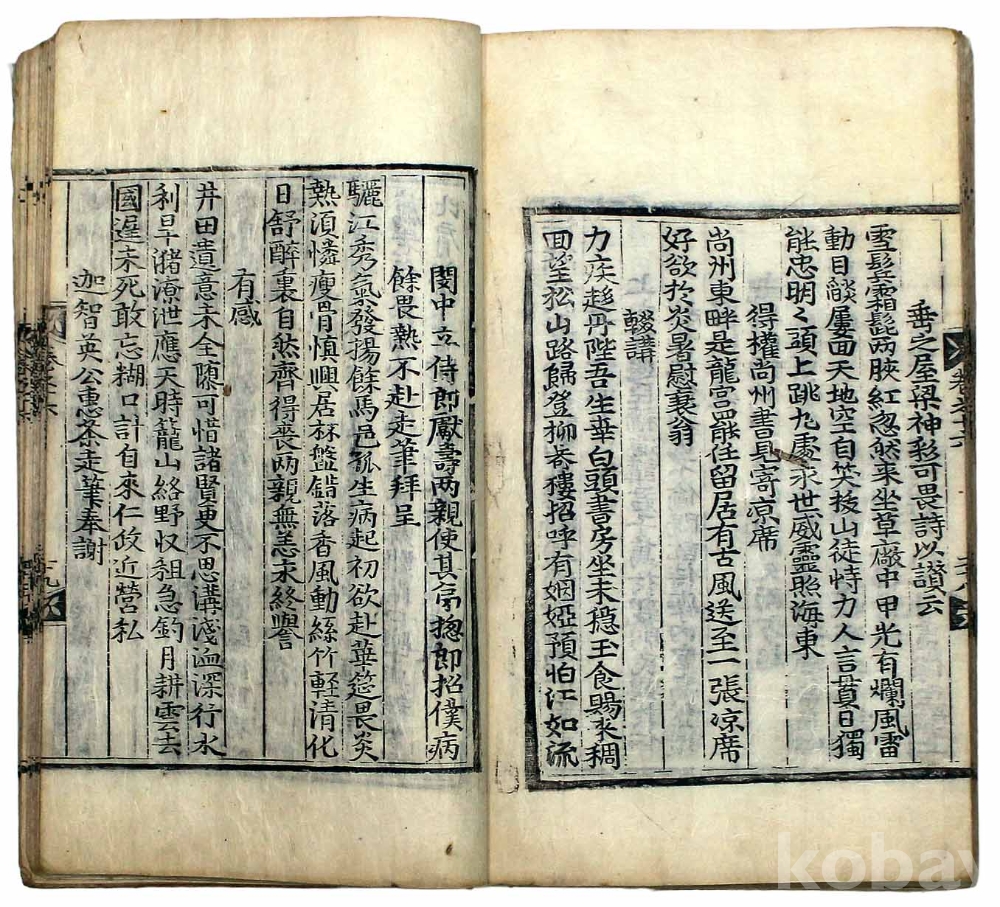 垂之屋梁神彩可畏詩以讃云
雪髯霜髭兩脥紅忽然来坐草廰中甲光有爛風雷
動日餤屢面天地空自笑拔山徒恃力人言貫日獨
能忠明〻頭上跳九處永世威靈照海東
得權尚州書見寄凉席
尚州東畔是龍宫罷任留居有古風送至一張凉席
好欲於炎暑慰衰翁
輟講
力疾趍丹陛吾生華白頭書房坐未穩玉食賜來稠
回望松山路歸登柳巷樓招呼有姻婭預怕江如流
閔中立侍郎獻壽兩親使其舅摠郎招僕病
餘畏熱不赴走筆拜呈
驪江秀氣發揚餘馬邑孤生病起初欲赴華筵畏炎
熱須憐瘦骨慎興居杯盤錯落香風動絲竹軽清化
日舒醉裏自然齊得喪兩親無恙永終譽
有感
井田遺意未全隳可惜諸賢更不思溝淺洫深行水
利旱瀦潦泄應天時籠山絡野収租急釣月耕雲去
國遅未死敢忘糊口計自來仁政近營私
迦智英公惠茶走筆奉謝
kobay